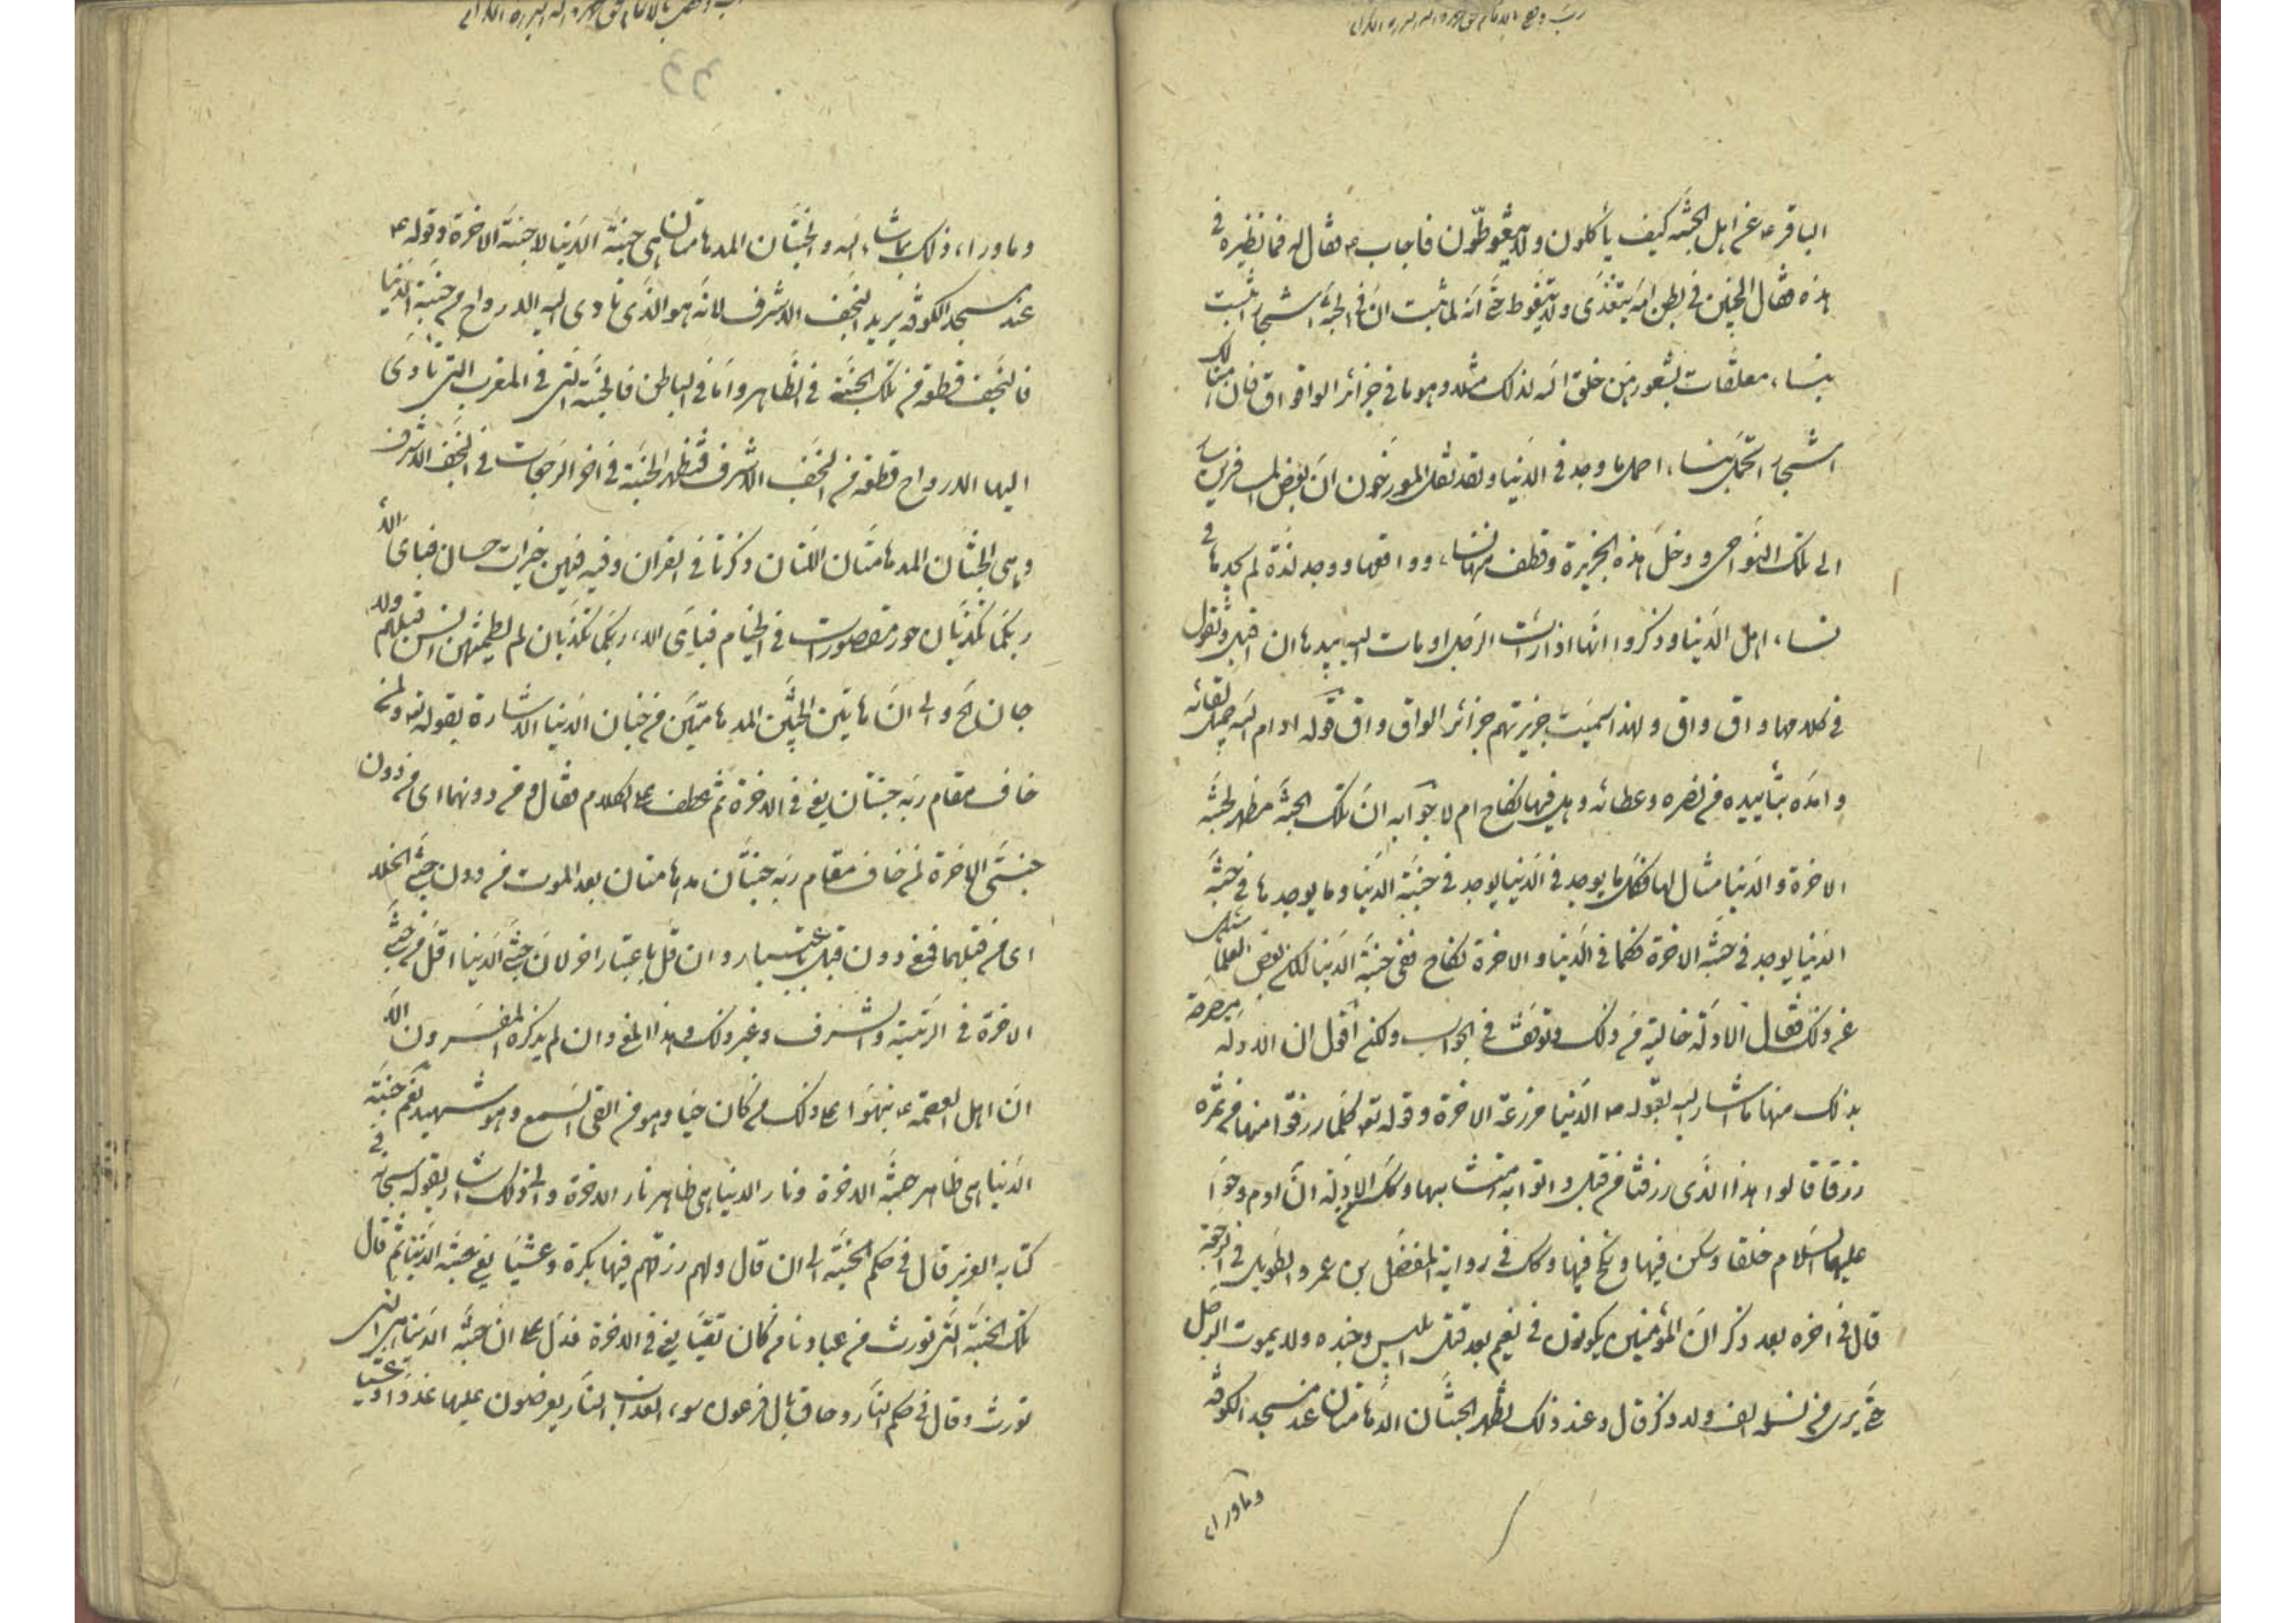 الباقر ع عن اهل الجنة كيف يأكلون ولا يتغوطون فاجاب ع فقال له فما نظيره في
هذه فقال الجنين في بطن امه يتغذى ولا يتغوط حتى انه لما ثبت ان في الجنة اشجار تنبت
بنساء معلقات بشعورهن خلق الله لذلك مثلا وهو ما في جزائر الواق واق فان هنالك
اشجار تحمل بنساء اجمل ما وجد في الدنيا ولقد نقل المورخون ان بعض المسافرين سار
الى تلك النواحي ودخل هذه الجزيرة وقطف منها نساء وواقعها ووجد لذة لم يجدها في
نساء اهل الدنيا وذكروا انها اذا رأت الرجل اومأت اليه بيدها ان اقبل وتقول
في كلامها واق واق ولهذا سميت جزيرتهم جزائر الواق واق قوله ادام الله جميل بقائه
وامده بتأييده من نصره وعطائه وهل فيها نكاح ام لا جوابه ان تلك الجنة مظهر لجنة
الاخرة والدنيا مثال لها فكل ما يوجد في الدنيا يوجد في جنة الدنيا وما يوجد ها في جنة
الدنيا يوجد في جنة الاخرة فكما في الدنيا والاخرة نكاح ففي جنة الدنيا كك سئل بعض العلماء
عن ذلك فقال الادلة خالية من ذلك وتوقف في الجواب ولكني اقول ان الادلة مصرحة
بذلك منها ما اشار اليه بقوله ع الدنيا مزرعة الاخرة وقوله تع كلما رزقوا منها من ثمرة
رزقا قالوا هذا الذي رزقنا من قبل واتوا به متشابها وكك الادلة ان ادم وحوا
عليهما السلام خلقا وسكن فيها ونكح فيها وكك في رواية المفضل بن عمر والطويل في الرجعة
قال في اخره بعد ذكر ان المؤمنين يكونون في نعيم بعد قتل ابليس وجنده ولا يموت الرجل
حتى يرى من نسله الف ولد ذكر قال وعند ذلك تظهر الجنتان المدهامتان عند مسجد الكوفة
وما وراء
وما وراء ذلك بما شاء الله والجنتان المدهامتان هي جنة الدنيا لا جنة الاخرة وقوله ع
عند مسجد الكوفة يريد النجف الاشرف لانه هو الذي تاوى اليه الارواح من جنة الدنيا
فالنجف قطعة من تلك الجنة في الظاهر واما في الباطن فالجنة التي في المغرب التي تاوى
اليها الارواح قطعة من النجف الاشرف فتظهر الجنة في اخر الرجعات في النجف الاشرف
وهي الجنتان المدهامتان اللتان ذكرتا في القران وفيه فيهن خيرات حسان فباى الاء
ربكما تكذبان حور مقصورات في الخيام فباى الاء ربكما تكذبان لم يطمثهن انس قبلهم ولا
جان الخ والى ان هاتين الجنتين المدهامتين من جنان الدنيا الاشارة بقوله تع ولمن
خاف مقام ربه جنتان يعني في الاخرة ثم عطف على الكلام فقال ومن دونهما اى من دون
جنتي الاخرة لمن خاف مقام ربه جنتان مدهامتان بعد الموت من دون جنتي الخلد
اى من قبلهما فمعنى دون قبل باعتبار وان قل باعتبار اخر لان جنتي الدنيا اقل من جنتي
الاخرة في الرتبة والشرف وغير ذلك وهذا المعنى وان لم يذكره المفسرون الا
ان اهل العصمة ع نبهوا على ذلك من كان حيا وهو من القى السمع وهو شهيد نعم جنة
الدنيا هي ظاهر جنة الاخرة ونار الدنيا هي ظاهر نار الاخرة والى ذلك اشار بقوله سبحانه في
كتابه العزيز قال في حكم الجنة الى ان قال ولهم رزقهم فيها بكرة وعشيا يعني جنة الدنيا ثم قال
تلك الجنة التي نورث من عبادنا من كان تقيا يعني في الاخرة فدل على ان جنة الدنيا هي التي
نورث وقال في حكم النار وحاق بال فرعون سوء العذاب النار يعرضون عليها غدوا وعشيا